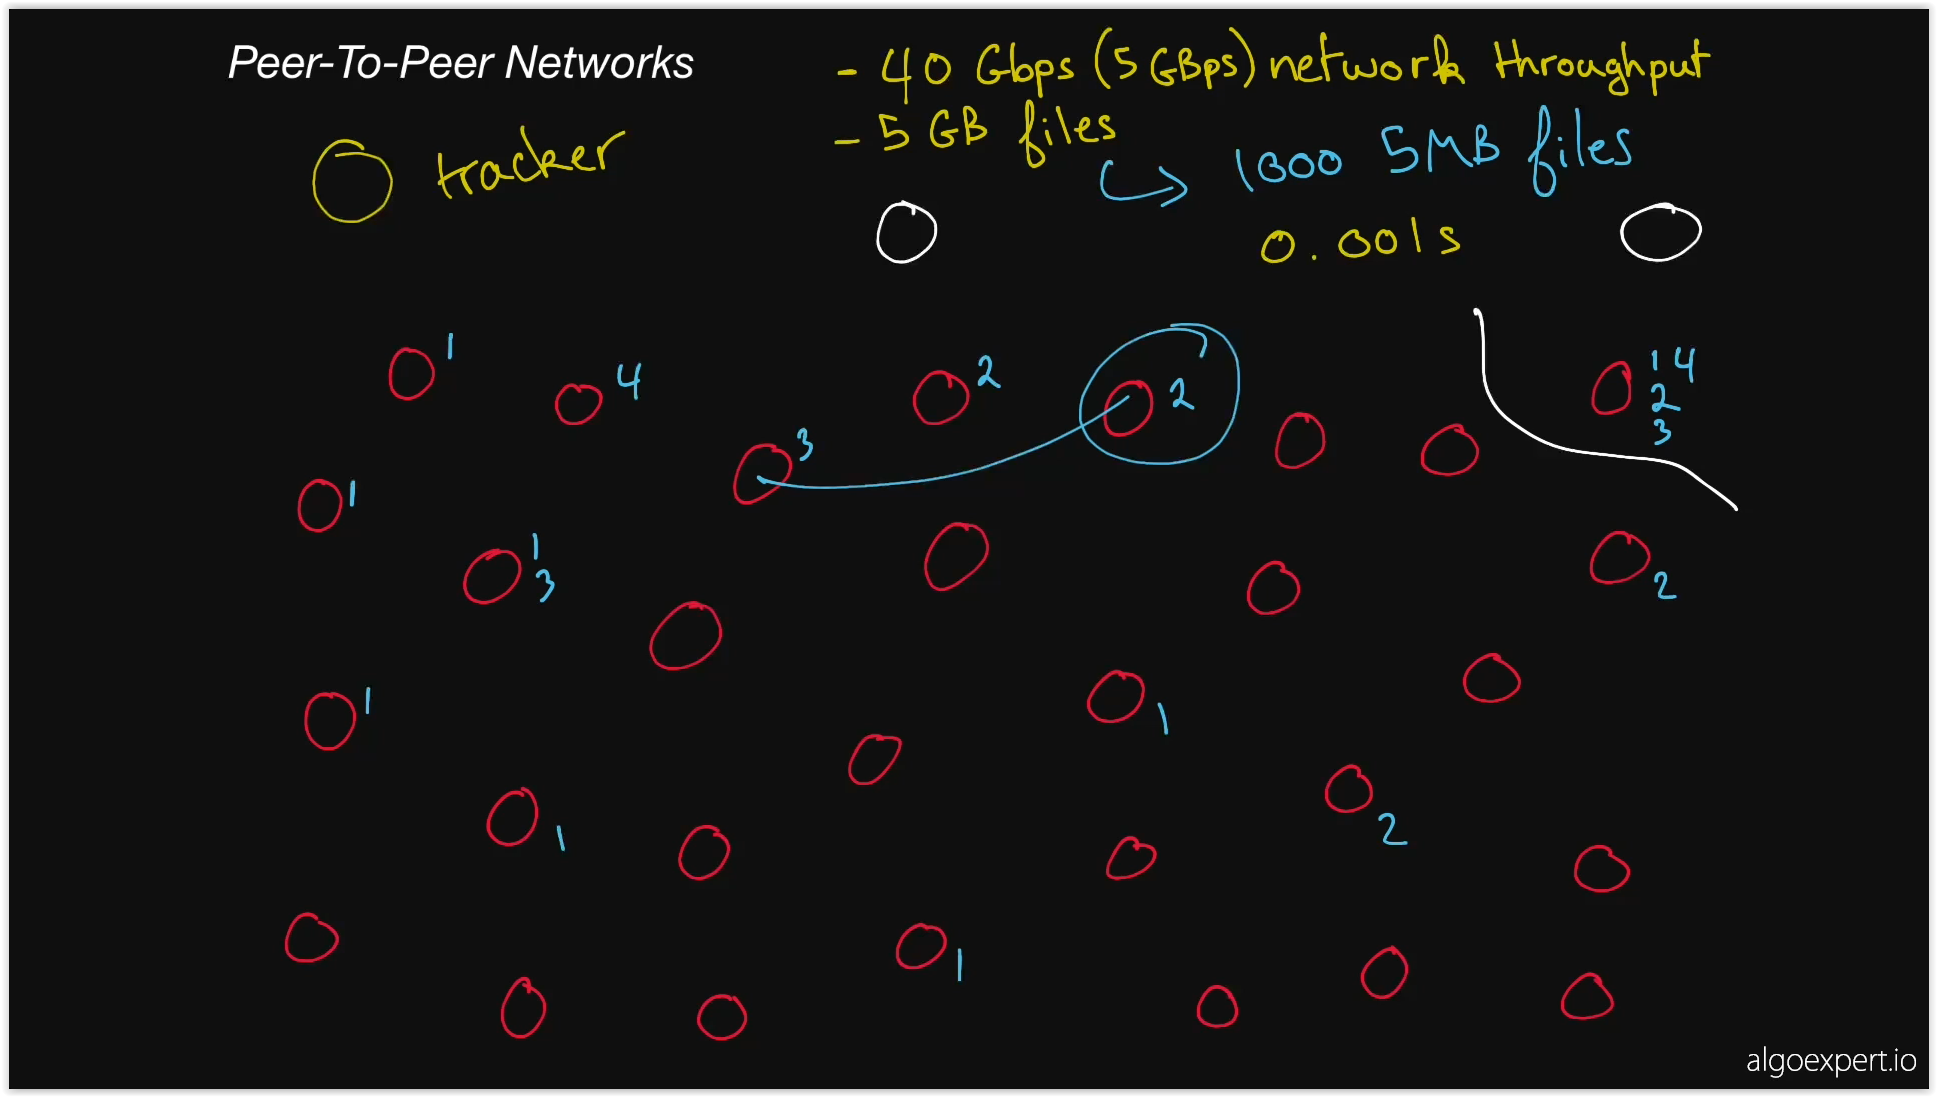 Peer-To-Peer Networks
- 40 Gbps (5 GBps) network throughput
- 5 GB files
1000 5MB files
tracker
0.001s
1
4
2
2
1 4
2
3
3
1
1
3
2
1
1
1
2
1
algoexpert.io